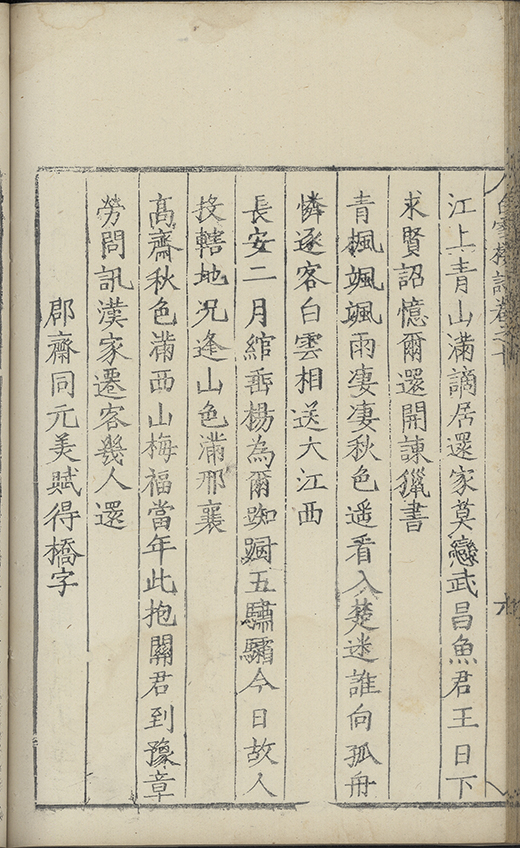 白雪樓詩卷之十
江上青山滿謫居還家莫戀武昌魚君王日下
求賢詔憶爾還開諫獵書
青楓颯颯雨凄凄秋色遥看入楚迷誰向孤舟
憐逐客白雲相送大江西
長安二月綰垂楊為爾踟躕五驌驦今日故人
投轄地况逢山色滿邢襄
高齋秋色滿西山梅福當年此抱關君到豫章
勞問訊漢家遷客幾人還
郡齋同元美賦得橋字